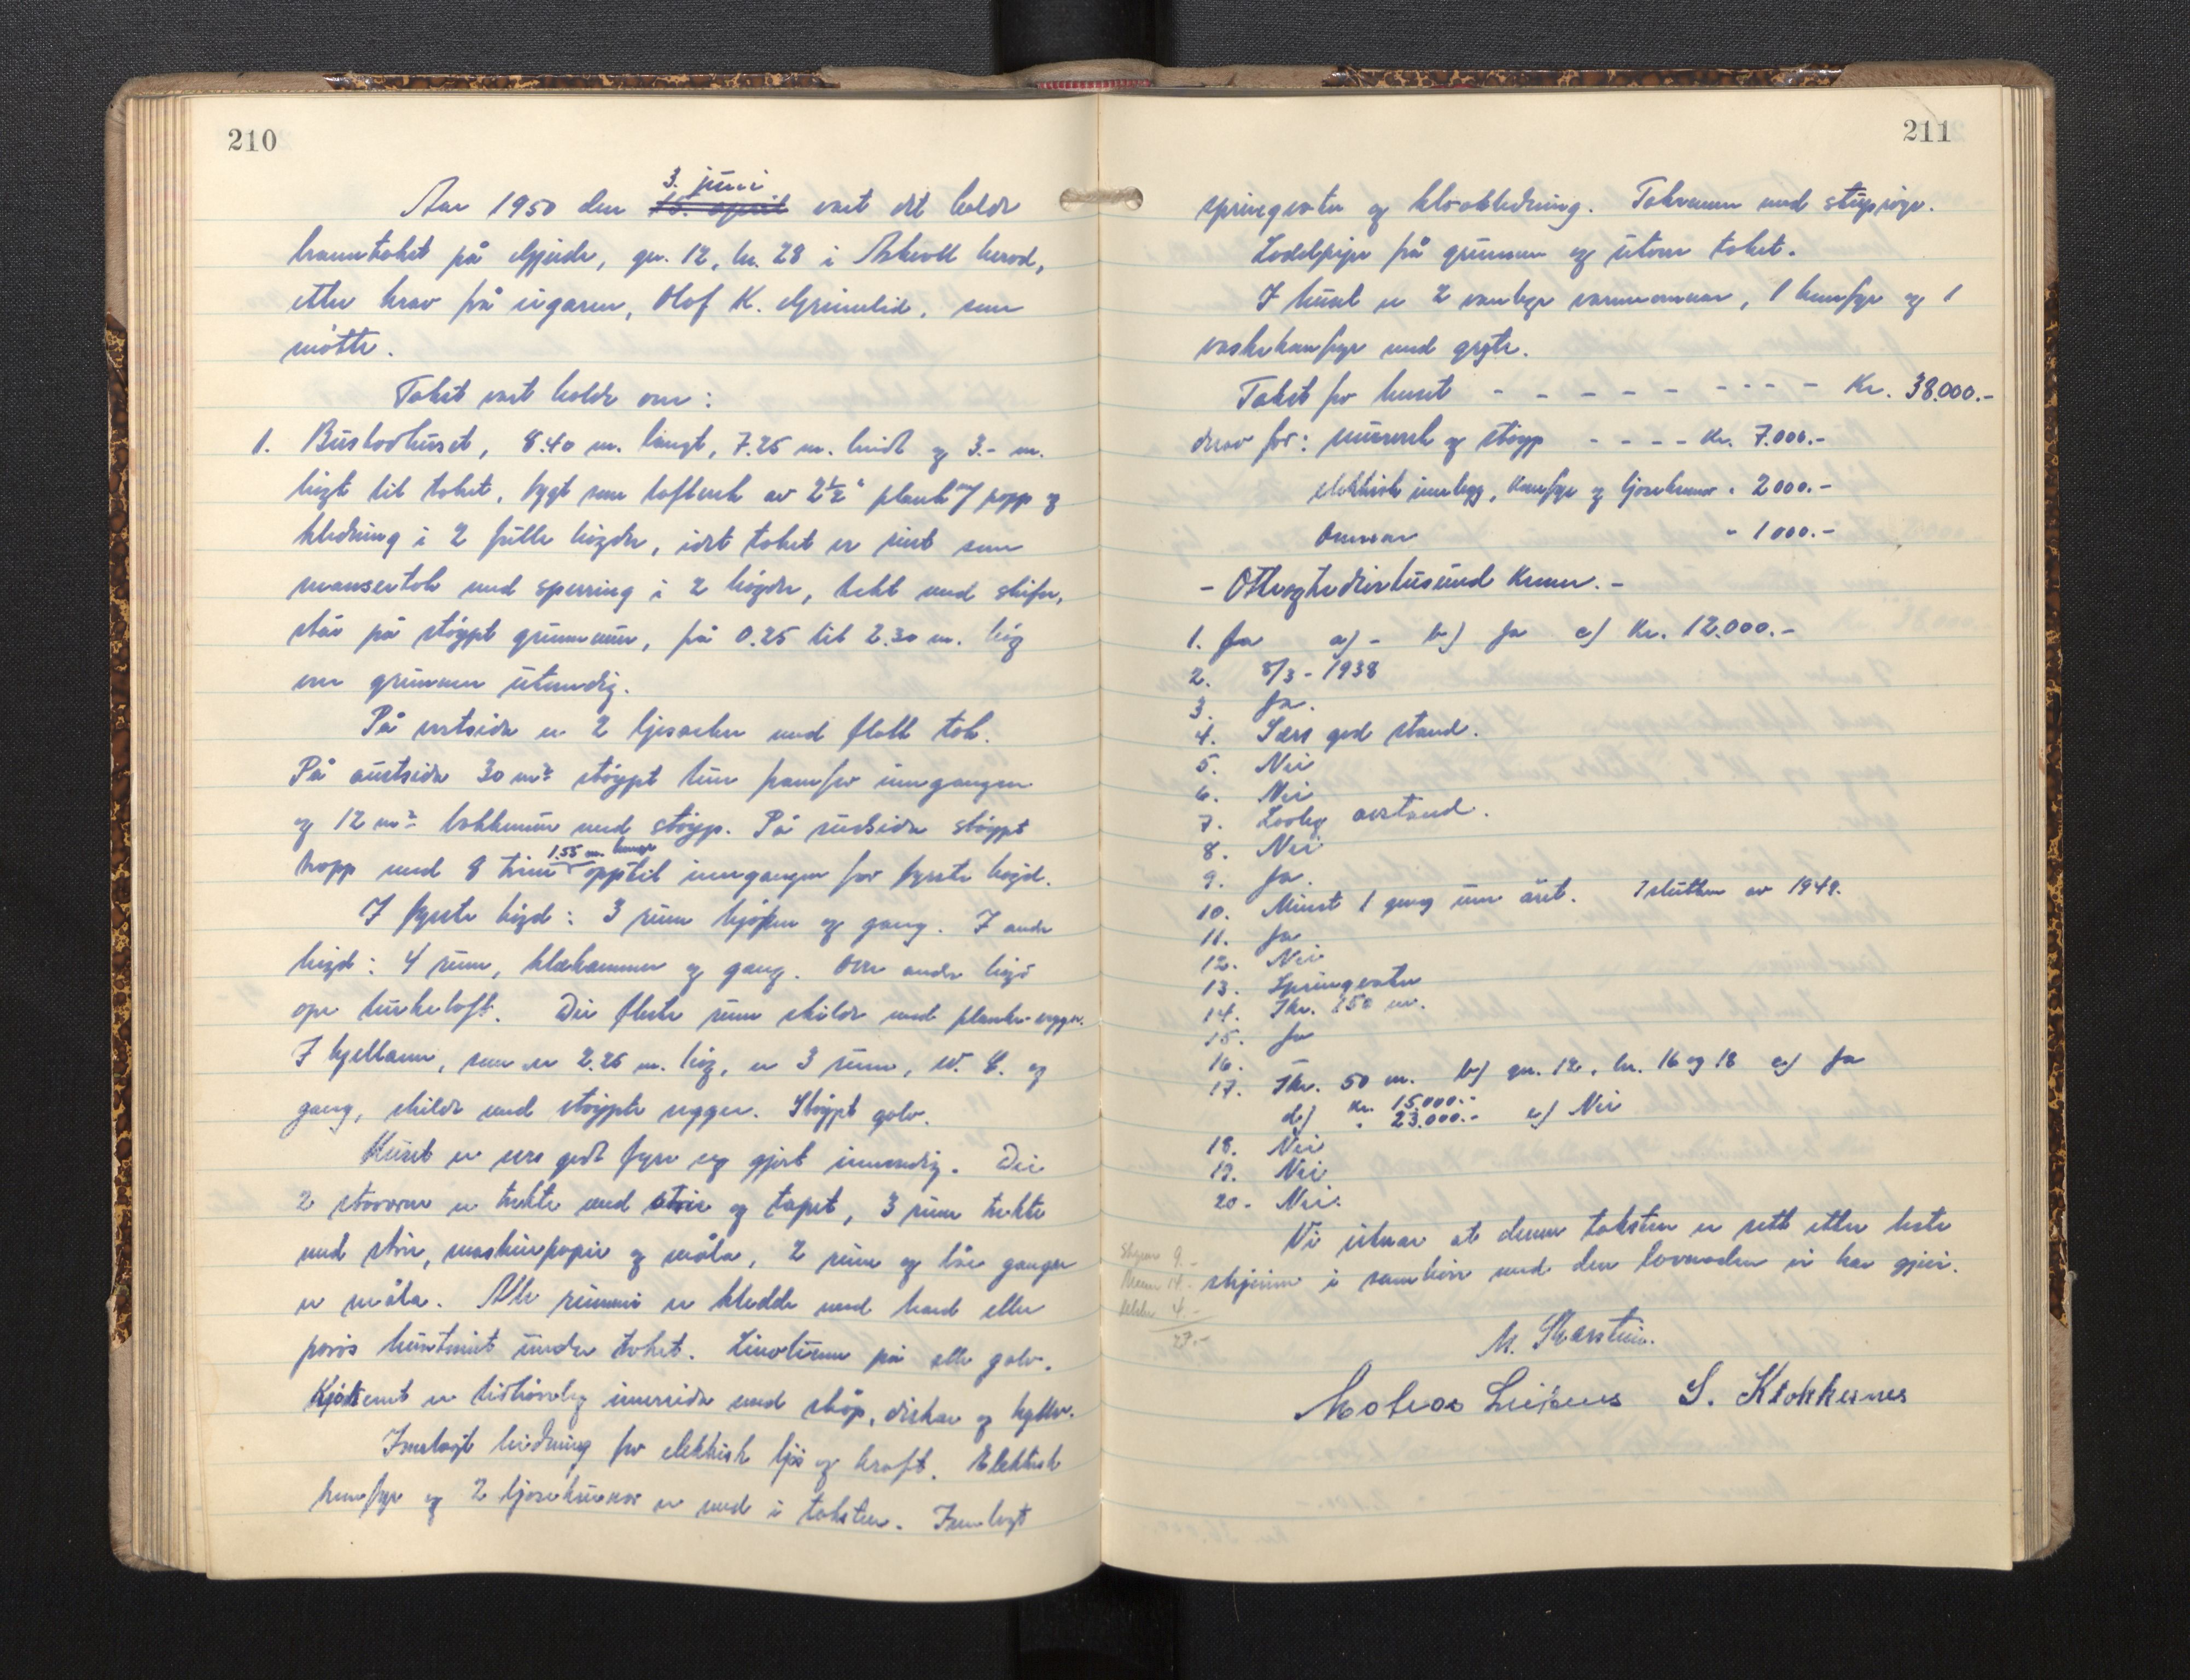 210
3. juni
Aar 1950 den 15. april vart det halde
branntakst på Gjeide, gn. 12, br. 28 i Askvoll herad,
etter krav frå eigaren, Olof K. Grimelid, som
møtte.
Takst vart halde over:
1. Bustadhuset, 8.40 m. langt, 7.25 m. breidt og 3.- m.
høgt til taket, bygt som lafteverk av 2½" plank m/ papp og
kledning i 2 fulle høgder, idet taket er reist som
mansertak med sperring i 2 høgder, tekt med skifer,
står på støypt grunnmur, frå 0.25 til 2.30 m. høg
over grunnen utvendig.
På vestsida er 2 ljosarker med flatt tak.
På austsida 30 m² støypt tun framfor inngangen
og 12 m² bakkemur med støyp. På sudsida støypt
1.55 m. lange
trapp med 8 trinn opptil inngangen for fyrste høgd.
I fyrste høgd: 3 rum kjøken og gang. I andre
høgd: 4 rum, klækammer og gang. Over andre høgd
ope turkeloft. Dei fleste rum skilde med planke-vegger.
I kjellaren, som er 2.25 m. høg, er 3 rum, W.C. og
gang, skilde med støypte vegger. Støypt golv.
Huset er sers godt fyre seg gjort innvendig. Dei
2 stovorne er trekte med strie og tapet, 3 rum trekte
med strie, maskinpapir og måla, 2 rum og tvo ganger
er måla. Alle rummi er kledde med hard eller
porøs huntonit under taket. Linoleum på alle golv.
Kjøkenet er tidhøveleg innreida med skåp, diskar og hyller.
Innlagt leidning for elektrisk ljos og kraft. Elektrisk
komfyr og 2 ljosekruner er med i taksten. Innlagt
211
springvatn og kloakkledning. Takrenner med stuprøyr.
Loddpipe frå grunnen og utover taket.
I huset er 2 vanlege varmeomnar, 1 komfyr og 1
vaskekomfyr med gryte.
Takst for huset - - - - - - - - - - Kr. 38.000.-
derav for: murverk og støyp - - - - Kr. 7.000.-
elektrisk innlegg, komfyr og ljosekruner " 2000.-
Omnar " 1000.-
- Otteogtredivetusund kroner. -
1. Ja a) - b) Ja c) Kr. 12.000.-
2. 8/3 - 1938
3. Ja.
4. Særs god stand.
5. Nei
6. Nei
7. Lovleg avstand.
8. Nei
9. Ja.
10. Minst 1 gang um året. I slutten av 1949.
11. Ja
12. Nei
13. Springvatn
14. Ikr. 150 m.
15. Ja
16. -
17. Ikr. 50 m. b) gn. 12, br. 16 og 18 c) Ja
d) Kr. 15.000.-
" 23.000.- e) Nei
18. Nei
19. Nei
20. Nei.
Vi vitnar at denne taksten er sett etter beste
skjønn i samhøve med den lovnaden vi har gjeve.
9.-
14.-
4.-
27.-
M. Skarstein.
S. Klokkernes